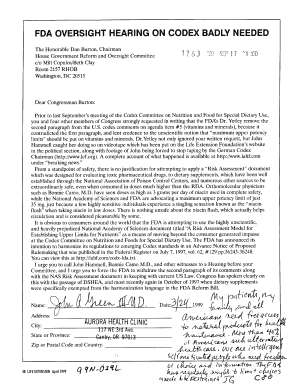 FDA OVERSIGHT HEARING ON CODEX BADLY NEEDED
The Honorable Dan Burton, Chairman
House Government Reform and Oversight Committee
c/o Milt Copulos/Beth Clay
Room 2157 RHOB
Washington, DC 20515
1763 '99 SEP 17
Dear Congressman Burton:
Prior to last September's meeting of the Codex Committee on Nutrition and Food for Special Dietary Use,
you and four other members of Congress strongly requested in writing that the FDA's Dr. Yetley remove the
second paragraph from the U.S. codex comments on agenda item #5 (vitamins and minerals), because it
contradicted the final paragraph, and lent credence to the unscientific notion that "maximum upper potency
limits" should be put on vitamins and minerals. Dr. Yetley not only ignored your written request, but John
Hammell caught her doing so on videotape which has been put on the Life Extension Foundation's website
in the political section, along with footage of John being forced to stop taping by the German Codex
Chairman (http://www.lef.org). A complete account of what happened is available at http://www.iahf.com
under "breaking news".
From a standpoint of safety, there is no justification for attempting to apply a "Risk Assessment" document
which was designed for evaluating toxic pharmaceutical drugs, to dietary supplements, which have been well
established through the National Association of Poison Control Centers, and numerous other sources to be
extraordinarily safe, even when consumed in doses much higher than the RDA. Orthomolecular physicians
such as Bonnie Camo M.D. have seen doses as high as 5 grams per day of niacin used in complete safety,
while the National Academy of Sciences and FDA are advocating a maximum upper potency limit of just
35 mg. just because a few highly sensitive individuals experience a tingling sensation known as the "niacin
flush" when taking niacin at low doses. There is nothing unsafe about the niacin flush, which actually helps
circulation and is considered pleasurable by some.
It is obvious to consumers around the world that the FDA is attempting to use the highly unscientific,
and heavily prejudiced National Academy of Sciences document titled "A Risk Assessment Model for
Establishing Upper Limits for Nutrients" as a means of moving beyond the consumer generated impasse
at the Codex Committee on Nutrition and Foods for Special Dietary Use. The FDA has announced its
intention to harmonize its regulations to emerging Codex standards in an Advance Notice of Proposed
Rulemaking that was published in the Federal Register on July 7, 1997, vol. 62, #129 pg.36243-36248.
You can view this at http://iahf.com/fr-fda.txt.
I urge you to call John Hammell, Bonnie Camo M.D., and other witnesses to a Hearing before your
Committee, and I urge you to force the FDA to withdraw the second paragraph of its comments along
with the NAS Risk Assessment document in keeping with current US Law. Congress has spoken clearly on
this with the passage of DSHEA, and most recently again in October of 1997 when dietary supplements
were specifically exempted from the harmonization language in the FDA Reform Bill.
Name: John A Green III M.D. Date: 3/24 1999
Address:
City:
State or Province:
Zip or Postal Code and Country:
AURORA HEALTH CLINIC
117 NE 3rd Ave.
Canby, OR 97013
My patients, my
family and all
Americans need free access
to natural products for health
maintenance. Now 40% of
Americans use alternative
health care. We are intelligent
well-motivated people who need freedom
of choice and information. The FDA
has regularly sought to limit choices
April 1999
99N-0292